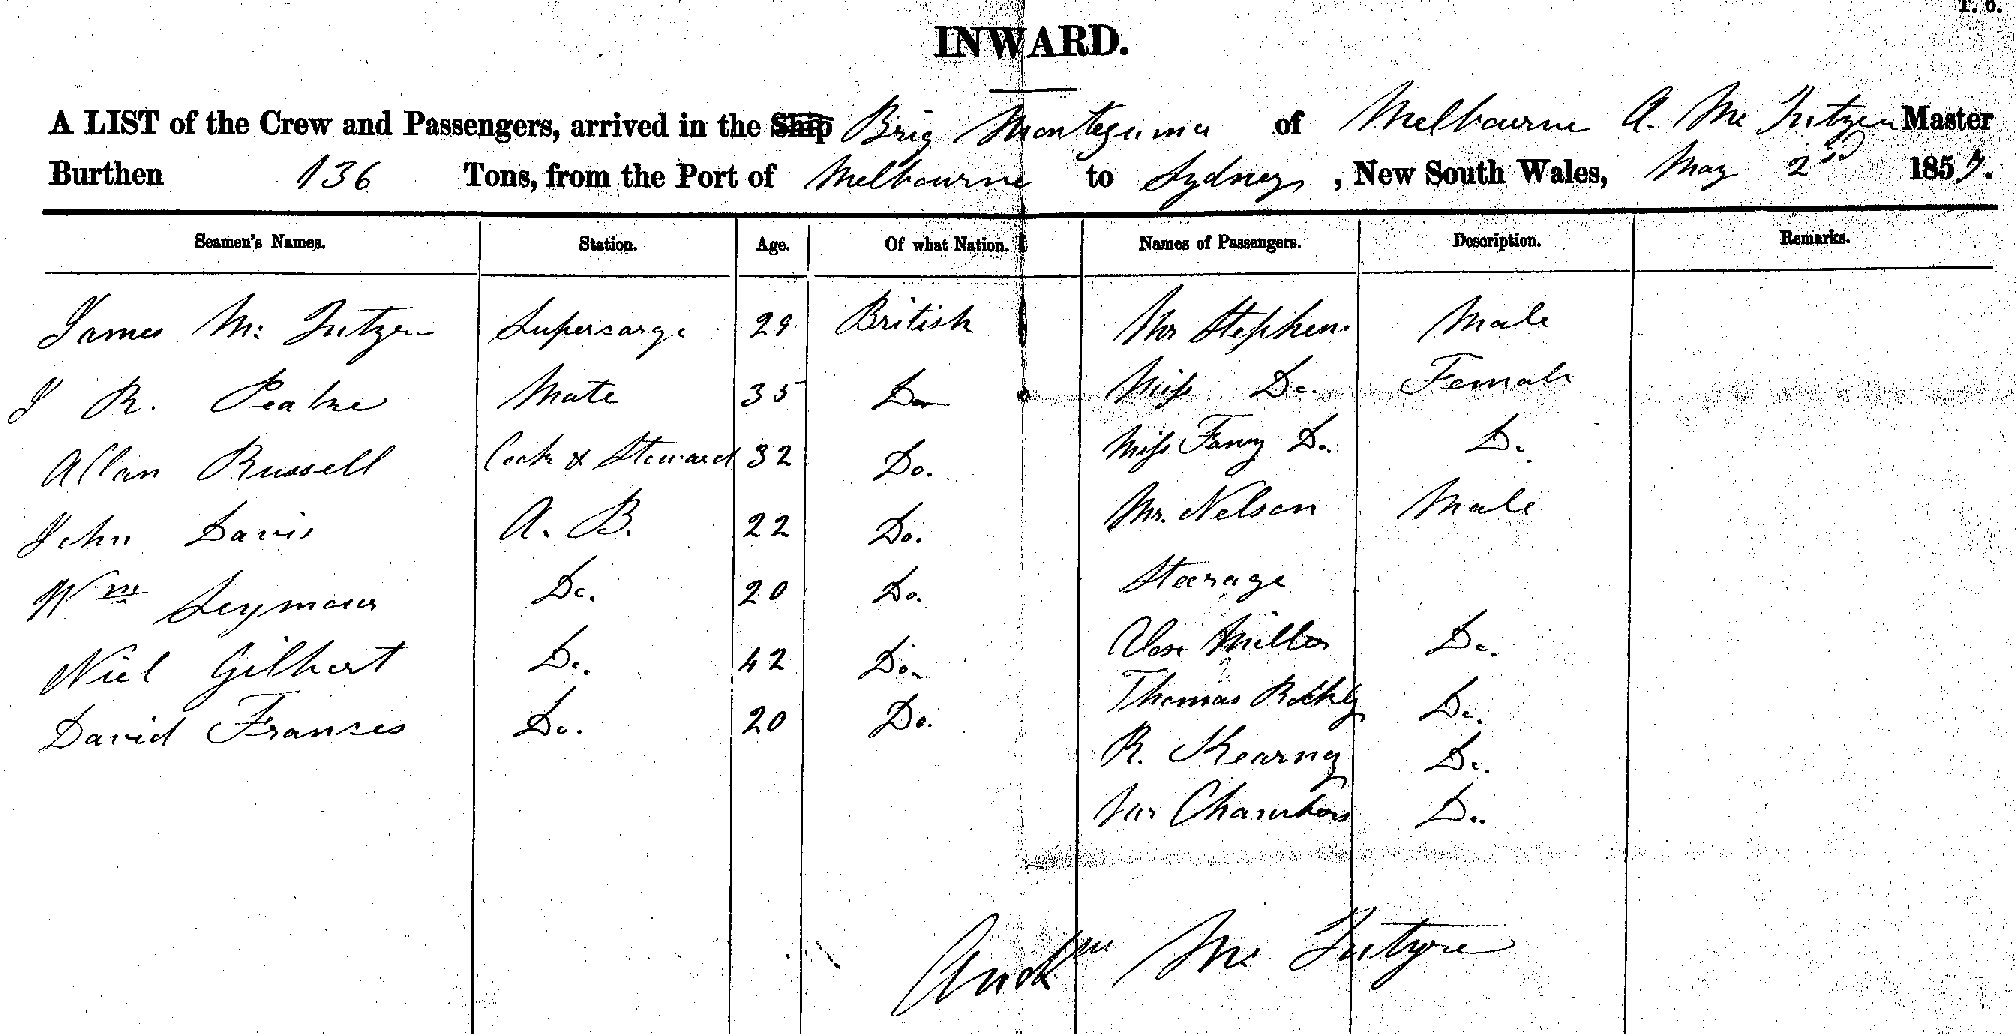 T. 6.
INWARD.
A LIST of the Crew and Passengers, arrived in the Ship Brig Montezuma of Melbourne A. Mc Intyre Master
Burthen 136 Tons, from the Port of Melbourne to Sydney, New South Wales, May 2nd 1857.
Seamen's Names. Station. Age. Of what Nation. Names of Passengers. Description. Remarks.
James Mc Intyre Supercargo 29 British Mr Stephens Male
J R. Peake Mate 35 Do Miss Do. Female
Allan Russell Cook & Steward 32 Do. Miss Fanny Do. Do.
John Davis A. B. 22 Do. Mr. Nelson Male
Wm Seymour Do. 20 Do. Steerage
Niel Gilbert Do. 42 Do. Miller Do.
David Franses Do. 20 Do. Thomas Do.
R. Kearney Do.
Chambers Do.
Andw Mc Intyre